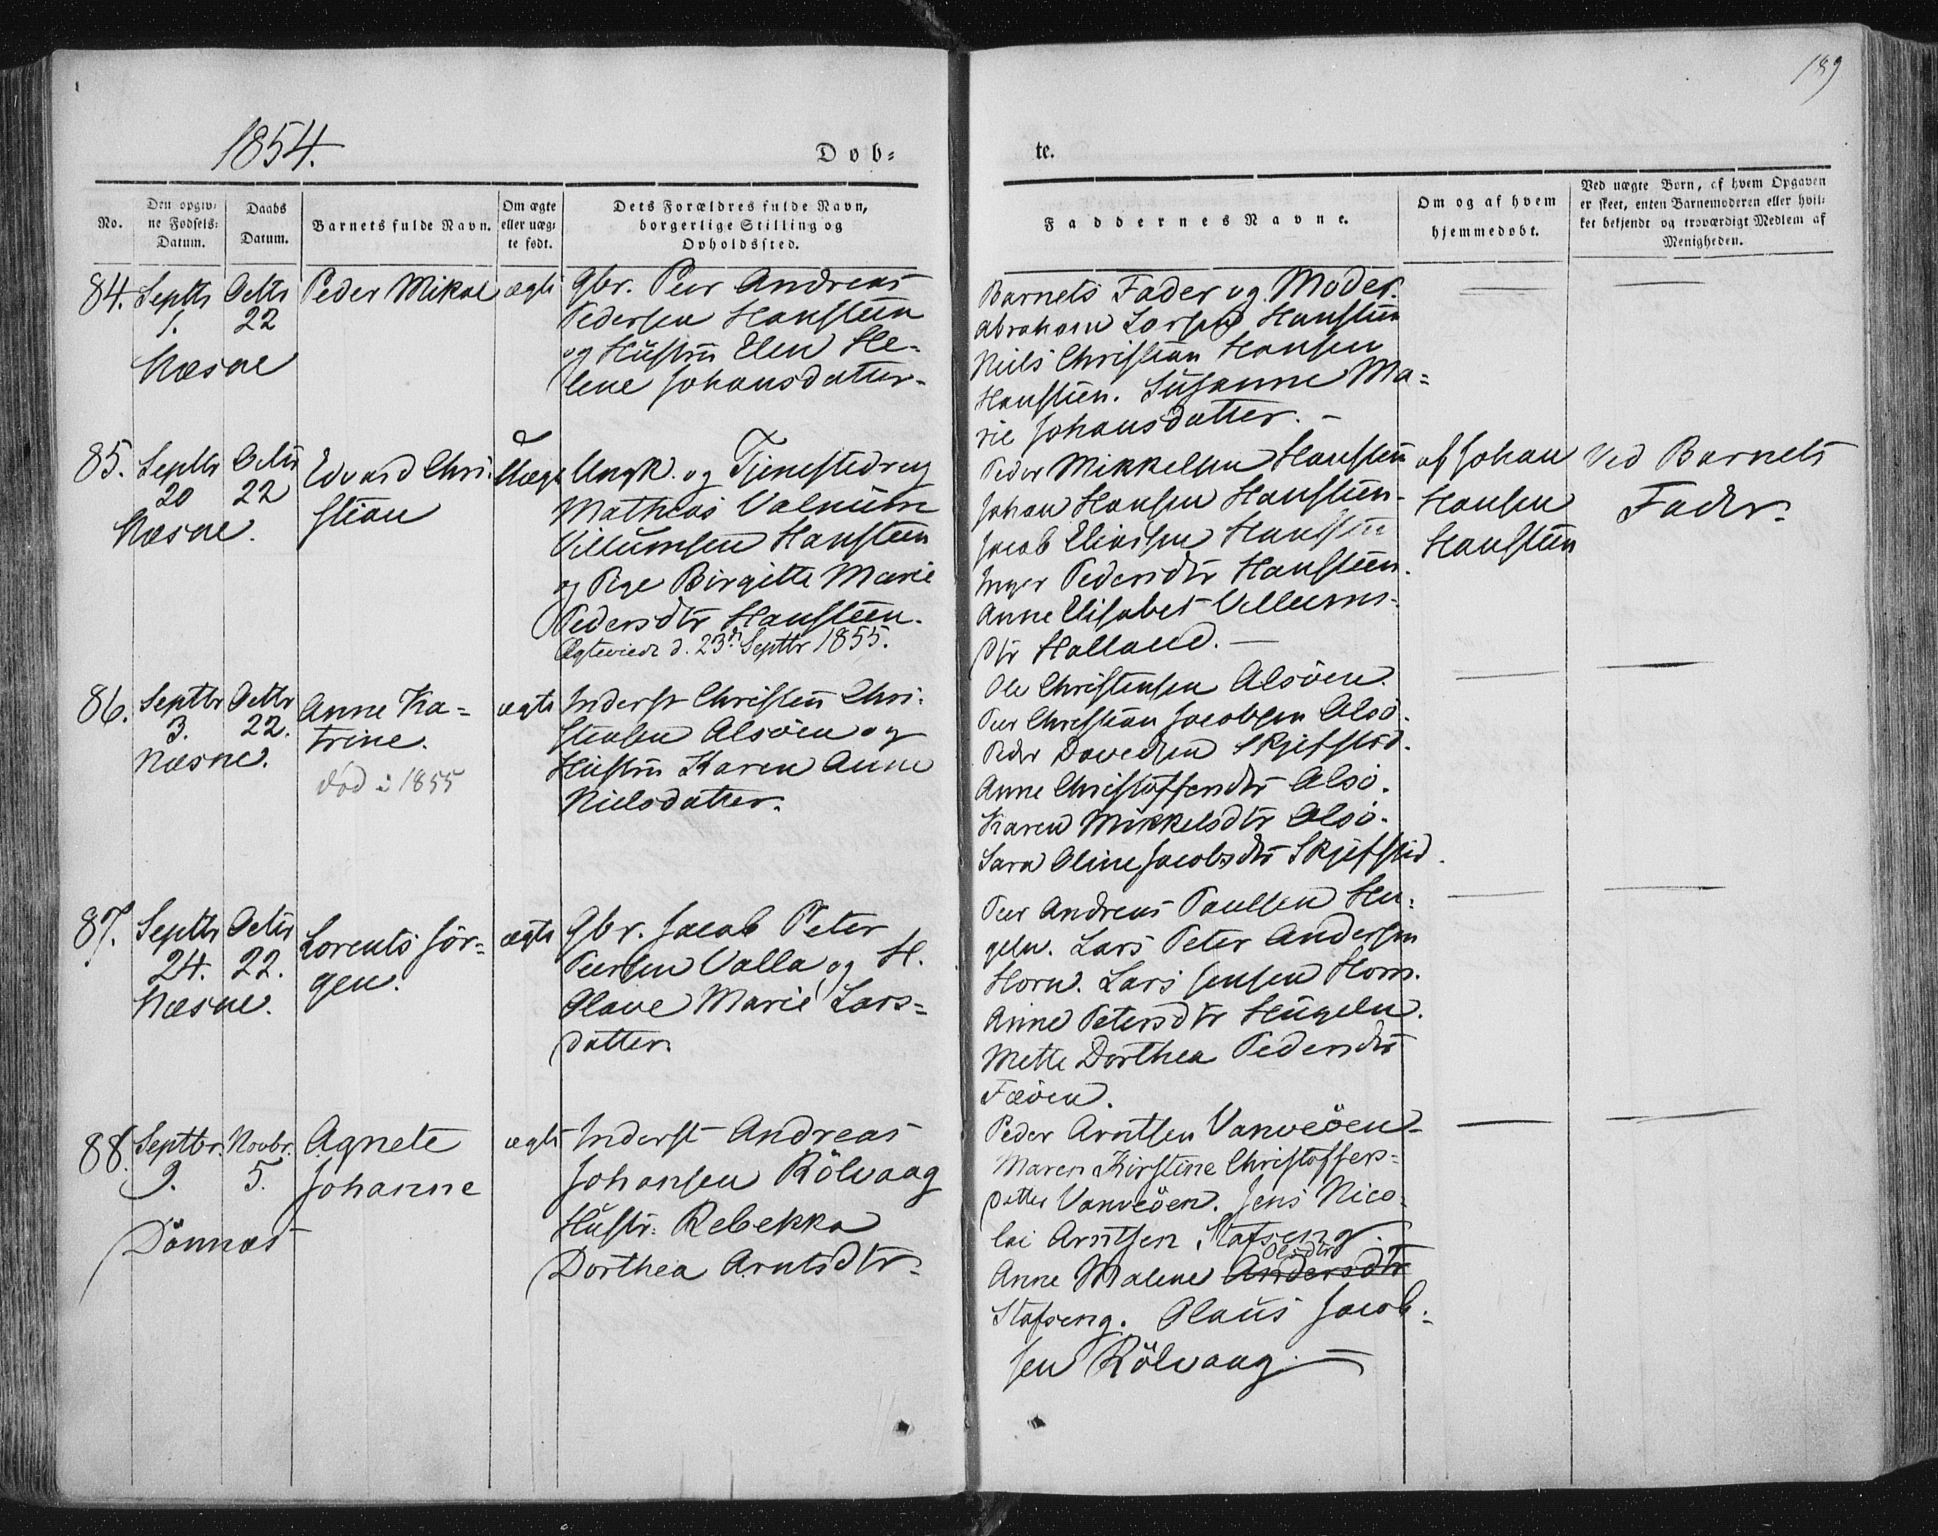 189
1854.
Døb-
te.
No.
Den opgiv-
ne Fødsels-
Datum.
Daabs
Datum.
Barnets fulde Navn.
Om ægte
eller uæg-
te født.
Dets Forældres fulde Navn,
borgerlige Stilling og
Opholdssted.
Faddernes Navne.
Om og af hvem
hjemmedøbt.
Ved uægte Børn, af hvem Opgaven
er skeet, enten Barnemoderen eller hvil-
ket bekjendt og troværdigt Medlem af
Menigheden.
84.
Septbr
1.
Octbr
22
Næsne
Peder Mikal
ægte
Gbr. Peer Andreas
Pedersen Hansteen
og Hustru Elen He-
lene Johansdatter.
Barnets Fader og Moder.
Abraham Larsen Hansteen
Niels Christian Hansen
Hansteen. Susanne Ma-
rie Johansdatter. -
85.
Septbr
20
Octbr
22
Næsne.
Edvard Chri-
stian
Uægte
Ungk. og Tjenestedreng
Mathias Valnum
Villumsen Hansteen
og Pige Birgitte Marie
Pedersdtr Hansteen.
Ægteviede d. 23de Septbr 1855.
Peder Mikkelsen Hansteen
Johan Hansen Hansteen.
Jacob Eliassen Hansteen
Inger Pedersdtr Hansteen.
Anne Elisabet Villums-
dtr Halland. -
af Johan
Hansen
Hansteen
Ved Barnets
Fader.
86.
Septbr
3.
Octbr
22.
Næsne.
Anne Ka-
trine.
død i 1855
ægte
Inderst Christen Chri-
stensen Alsøen og
Hustru Karen Anne
Nielsdatter.
Ole Christensen Alsøen.
Peer Christian Jacobsen Alsø.
Peder Davedsen Skjefsted.
Anne Christoffersdtr Alsø.
Karen Mikkelsdtr Alsø.
Sara Oline Jacobsdtr Skjefsted.
87.
Septbr
24.
Octbr
22.
Næsne.
Lorents Jør-
gen.
ægte
Gbr. Jacob Peter
Peersen Valla og H.
Olave Marie Lars-
datter.
Peer Andreas Paulsen Hu-
geln. Lars Peter Andersen
Horn. Lars Jensen Horn.
Anne Petersdtr Hugeln.
Mette Dorthea Pedersdtr
Fæøen.
88.
Septbr.
9.
Novbr.
5.
Dønnæs
Agnete
Johanne
ægte
Inderst Andreas
Johansen Rölvaag
Hustr: Rebekka
Dorthea Arntsdtr.
Peder Arntsen Vanveöen
Maren Kirstine Christoffers-
datter Vanveöen. Jens Nico-
lai Arntsen Stafseng.
Olsdtr
Anne Malene Andersdtr
Stafseng. Olaus Jacob-
sen Rölvaag. -